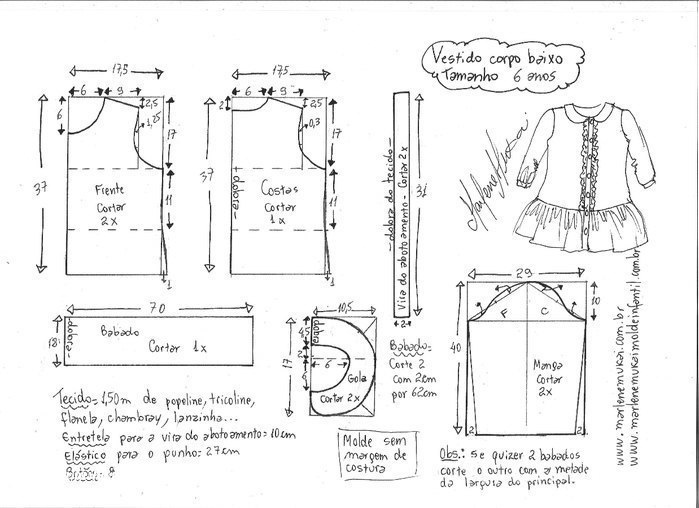 Vestido corpo baixo
Tamanho 6 anos
17,5
6
9
6
2,5
1,25
17
37
11
1
Frente
Cortar
2x
17,5
6
9
2
2,5
0,3
17
37
11
1
dobra
Costas
Cortar
1x
dobra do tecido
Vira do abotoamento - Cortar 2x
2
Marlene Mukai
29
10
40
F
C
Manga
cortar
2x
2
2
70
18
dobra
Babado
Cortar 1x
10,5
dobra
4,5
2
17
6
Gola
Cortar 2x
Babado:
Corte 2
com 2cm
por 62cm
Tecido= 1,50m de popeline, tricoline,
flanela, chambray, lanzinha...
Entretela para a vira do abotoamento= 10cm
Elástico para o punho= 27cm
Molde sem
margem de
costura
Obs.: Se quizer 2 babados
corte o outro com a metade
da largura do principal.
www.marlenemukai.com.br
www.marlenemukaimoldeinfantil.com.br